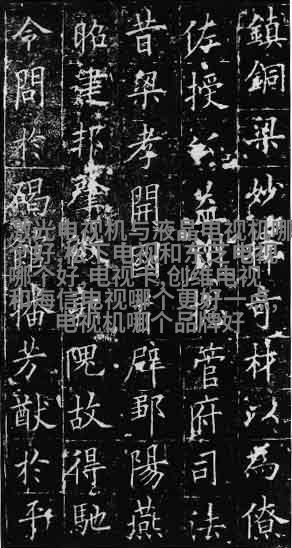 鎮銅梁妙擇奇材以為僚
佐授益管府司法
昔梁孝開國辟鄒陽燕
昭建邦肇隗故得馳
令問於碣播芳猷於平
激光电视机与液晶电视机哪
个好,电视和东芝电视
哪个好,电视卡,创维电视
和海信电视哪个更好一点
电视机哪个品牌好